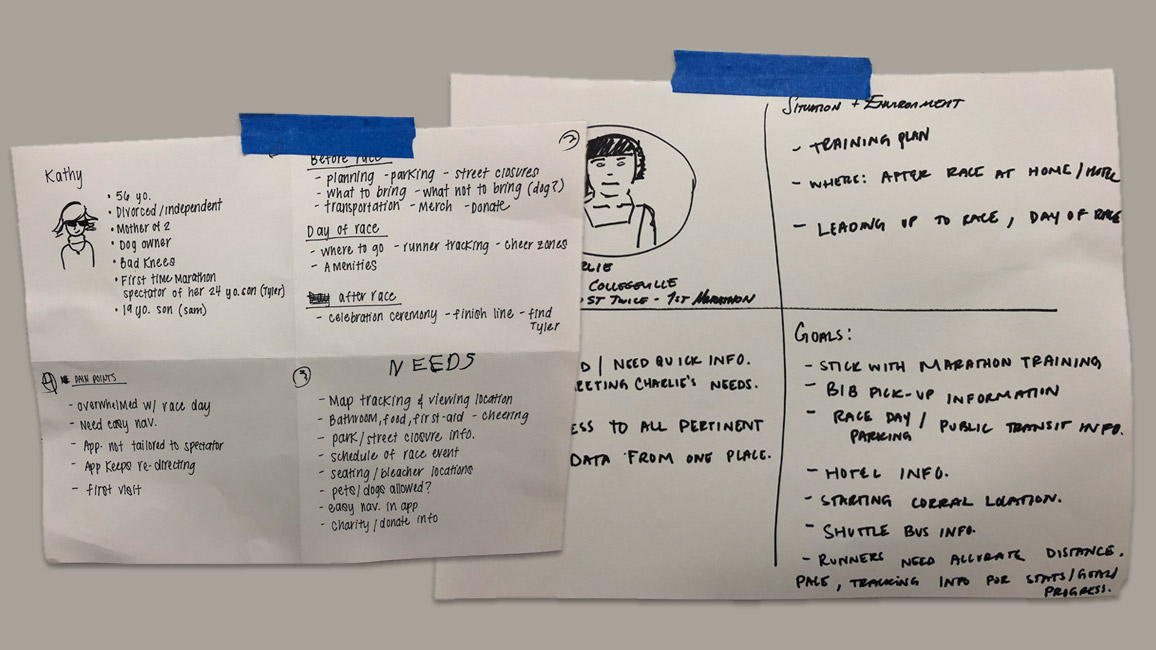 Kathy
• 56 yo.
• Divorced/independent
• Mother of 2
• Dog owner
• Bad Knees
• First time Marathon
spectator of her 24 yo. son (Tyler)
• 19 yo. son (sam)
2
Before race
- planning - parking - street closures
- what to bring - what not to bring (dog?)
- transportation - Merch - Donate
Day of race
- where to go - runner tracking - cheer zones
- Amenities
after race
- celebration ceremony - finish line - find
Tyler
4 PAIN POINTS
- overwhelmed w/ race day
- Need easy nav.
- App. not tailored to spectator
- App keeps re-directing
- first visit
3 NEEDS
- Map tracking & viewing location
- Bathroom, food, first-aid - cheering
- park/street closure info.
- schedule of race event
- seating/bleacher locations
- pets/dogs allowed?
- easy nav. in app
- charity/donate info
RLIE
COLLEGEVILLE
ST TWICE - 1ST MARATHON
SITUATION + ENVIRONMENT
- TRAINING PLAN
- WHERE: AFTER RACE AT HOME/HOTEL
- LEADING UP TO RACE, DAY OF RACE
D / NEED QUICK INFO.
EETING CHARLIE'S NEEDS.
ESS TO ALL PERTINENT
DATA FROM ONE PLACE.
GOALS:
- STICK WITH MARATHON TRAINING
- BIB PICK-UP INFORMATION
- RACE DAY / PUBLIC TRANSIT INFO.
PARKING
- HOTEL INFO.
- STARTING CORRAL LOCATION.
- SHUTTLE BUS INFO.
- RUNNERS NEED ACCURATE DISTANCE.
PACE, TRACKING INFO FOR STATS/GOALS/
PROGRESS.